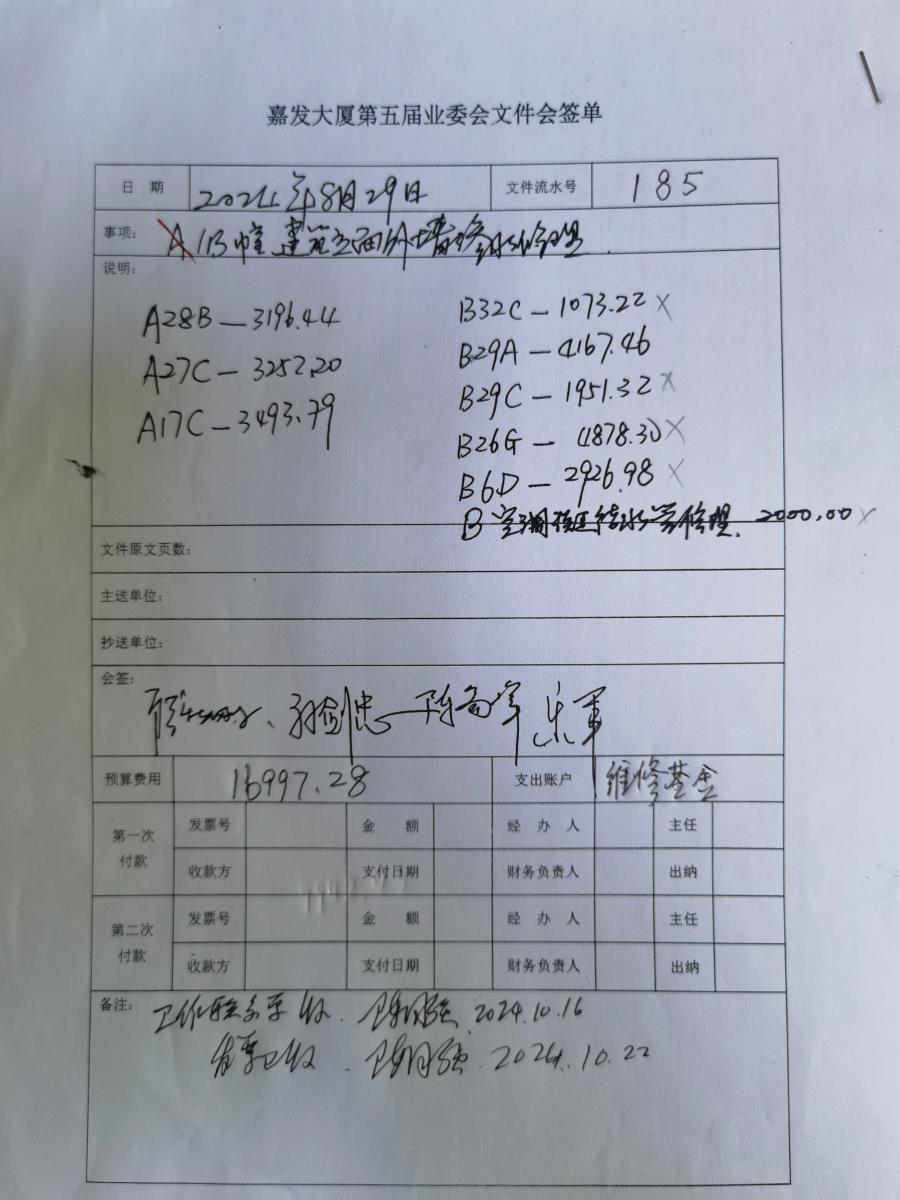 嘉发大厦第五届业委会文件会签单
日 期 2024年8月29日 文件流水号 185
事项: A/B幢建筑立面外墙渗水修理.
说明:
A28B — 3196.44 B32C — 1073.22 X
A27C — 3252.20 B29A — 4167.46
A17C — 3493.79 B29C — 1951.32 X
B26G — 4878.30 X
B6D — 2926.98 X
B 空调 修理. 2000.00 X
文件原文页数:
主送单位:
抄送单位:
会签:
预算费用 16997.28 支出账户 维修基金
第一次付款 发票号 金 额 经 办 人 主任
收款方 支付日期 财务负责人 出纳
第二次付款 发票号 金 额 经 办 人 主任
收款方 支付日期 财务负责人 出纳
备注: 工作联系单收. 2024.10.16
发票已收. 2024.10.22